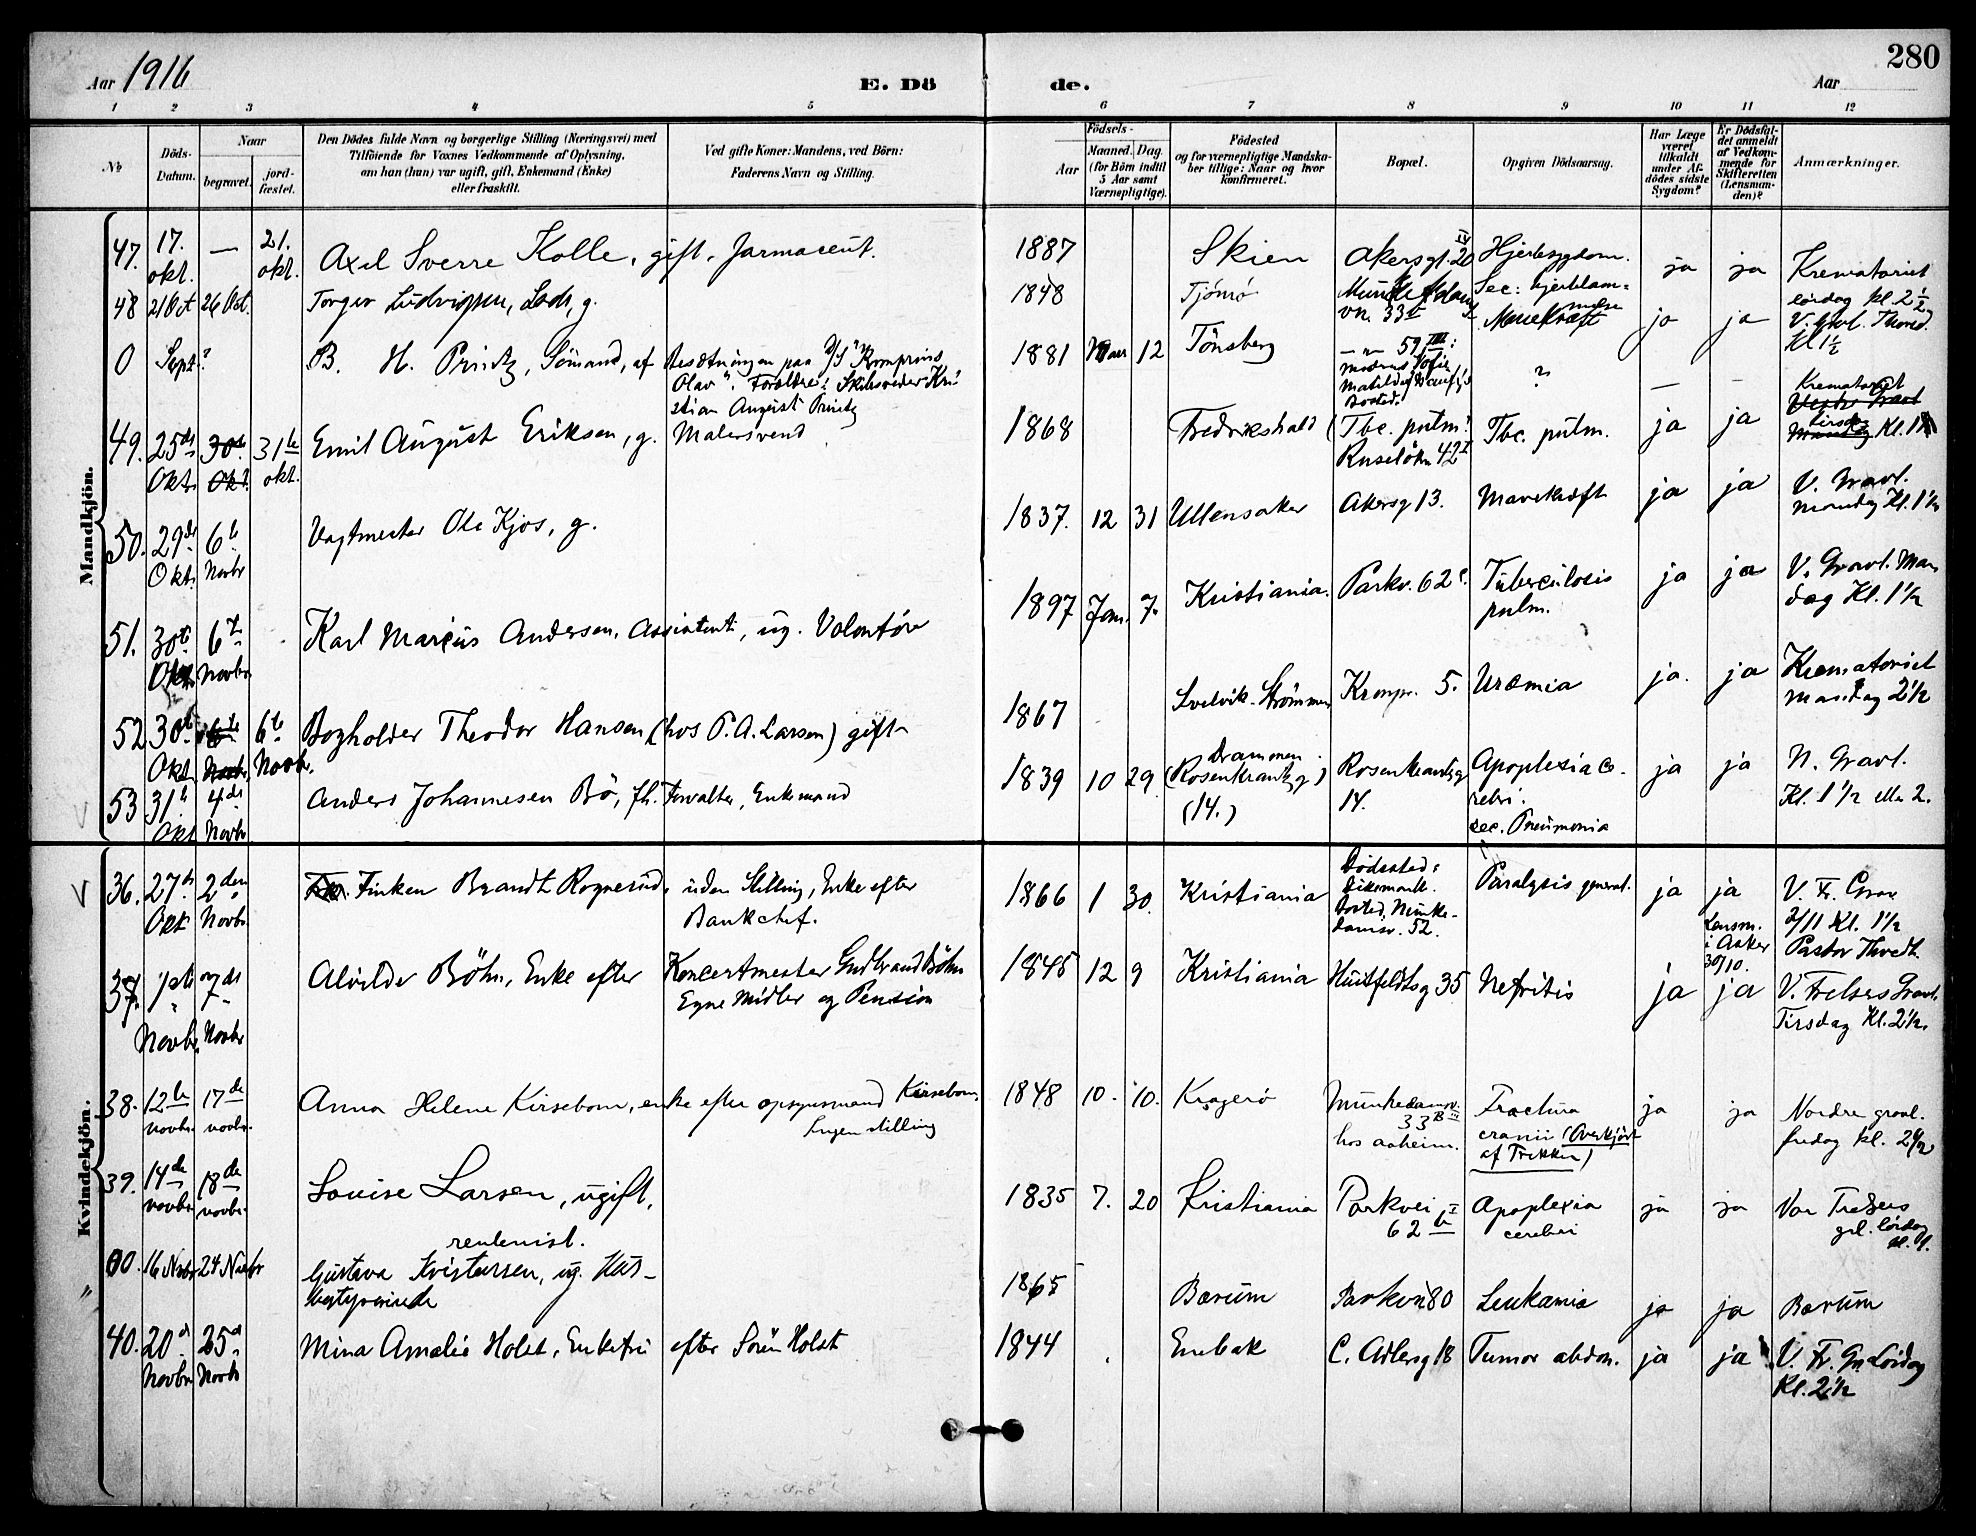 280
Aar 1916
E. Dö
de.
Aar
1 2 3 4 5 6 7 8 9 10 11 12
No
Döds-
Datum.
Naar
begravet.
jord-
fæstet.
Den Dödes fulde Navn og borgerlige Stilling (Næringsvei) med
Tilföiende for Voxnes Vedkommende af Oplysning,
om han (hun) var ugift, gift, Enkemand (Enke)
eller fraskilt.
Ved gifte Koner: Mandens, ved Börn:
Faderens Navn og Stilling.
Födsels-
Aar
Maaned. Dag.
(for Börn indtil
5 Aar samt
Værnepligtige).
Födested
og for værnepligtige Mandska-
ber tillige: Naar og hvor
konfirmeret.
Bopæl.
Opgiven Dödsaarsag.
Har Læge
været
tilkaldt
under Af-
dödes sidste
Sygdom?
Er Dödsfal-
det anmeldt
af Vedkom-
mende for
Skifteretten
(Lensman-
den)?
Anmærkninger.
Mandkjön.
47. 17. okt. — 21. okt. Axel Sverre Kolle, gift, farmaceut. 1887 Skien Akersgt. 20 IV Hjertesygdom. ja ja Krematoriet
lördag kl. 2 1/2
48 21 Okt 26 Okt. Torger Ludvigsen, Lods, g. 1848 Tjömö vn. 33 II Mavekræft ja ja V. Gravl.
Kl 1 1/2
0 Sept. ? B. H. Printz, Sömand, af Besætningen paa D/S "Kronprins
Olav". Forældre: Skibsreder Kri-
stian August Printz 1881 Mars 12 Tönsberg — " — 59 III: ? — —
49. 25de Okt. 30te Okt. 31te okt. Emil August Eriksen, g. Malersvend 1868 Fredrikshald (Tbc. pulm.?
Ruselökv 42 I Tbc. pulm. ja ja Krematoriet
Vestre Gravl
tirsdag
Mandag Kl. 1
50. 29de Okt. 6te Novbr Vagtmester Ole Kjos, g. 1837. 12 31 Ullensaker Akersg 13. Mavekræft ja ja V. Gravl.
mandag Kl. 1 1/2
51. 30te Okt. 6te Novbr Karl Marius Andersen, Assistent, ug. Volontör 1897 Jan. 7. Kristiania. Parkv. 62 Tuberculosis
pulm. ja ja V. Gravl. Man
dag Kl. 1 1/2
52 30te Okt. 6te Novbr. 6te Novbr. Bogholder Theodor Hansen (hos P. A. Larsen) gift 1867 Svelvik-Strömmen Kronpr. 5. Uræmia ja. ja Krematoriet
mandag 2 1/2
53 31te Okt 4de Novbr Anders Johannesen Bö, fh. Forvalter, Enkemand 1839 10 29. Drammen
(Rosenkrantzg)
(14.) Rosenkrantzg
14. Apoplexia ce-
rebri.
sec. Pneumonia ja ja N. Gravl.
Kl. 1 1/2 elle 2.
Kvindekjön.
36. 27de Okt 2den Novbr. Finken Brandt Rognerud, uden Stilling, Enke efter
Bankchef. 1866 1 30. Kristiania Dödssted:
Dikemark.
Bosted, Munke-
damsv. 52. Paralysis general. ja ja
Lensm.
i Asker
30/10. V. Fr. Grav
2/11 Kl. 1 1/2
Pastor
37. 1ste Novbr. 7de Novbr Alvilde Böhn, Enke efter Koncertmester Gudbrand Böhn
Egne Midler og Pension 1845 12 9 Kristiania Huitfeldtsg 35 Nefritis ja ja V. Frelsers Gravl.
Tirsdag Kl. 2 1/2.
38. 12te novbr. 17de novbr. Anna Helene Kirsebom, enke efter opsynsmand Kirsebom.
Ingen stilling 1848 10. 10. Kragerö Munkedamsv.
33 B III
hos Aaheim. Fractura
cranii (Overkjört
af Trikken) ja ja Nordre gravl.
fredag kl. 2 1/2
39. 14de novbr. 18de novbr. Louise Larsen, ugift,
rentenist. 1835 7. 20 Kristiania Parkvei
62 b I Apoplexia
cerebri ja ja Vor Frelsers
grl. lördag
kl. 1.
00. 16 Novbr 24 Novbr Gustava Kristensen, ug. Hus-
bestyrerinde 1865 Bærum Parkvn 80 Leukæmia ja ja Bærum
40. 20de Novbr 25de Novbr Mina Amalie Holst, Enkefru efter Sören Holst 1844 Enebak C. Adlersg 18 Tumor abdom. ja ja V. Fr. Gr. Lördag
Kl. 2 1/2